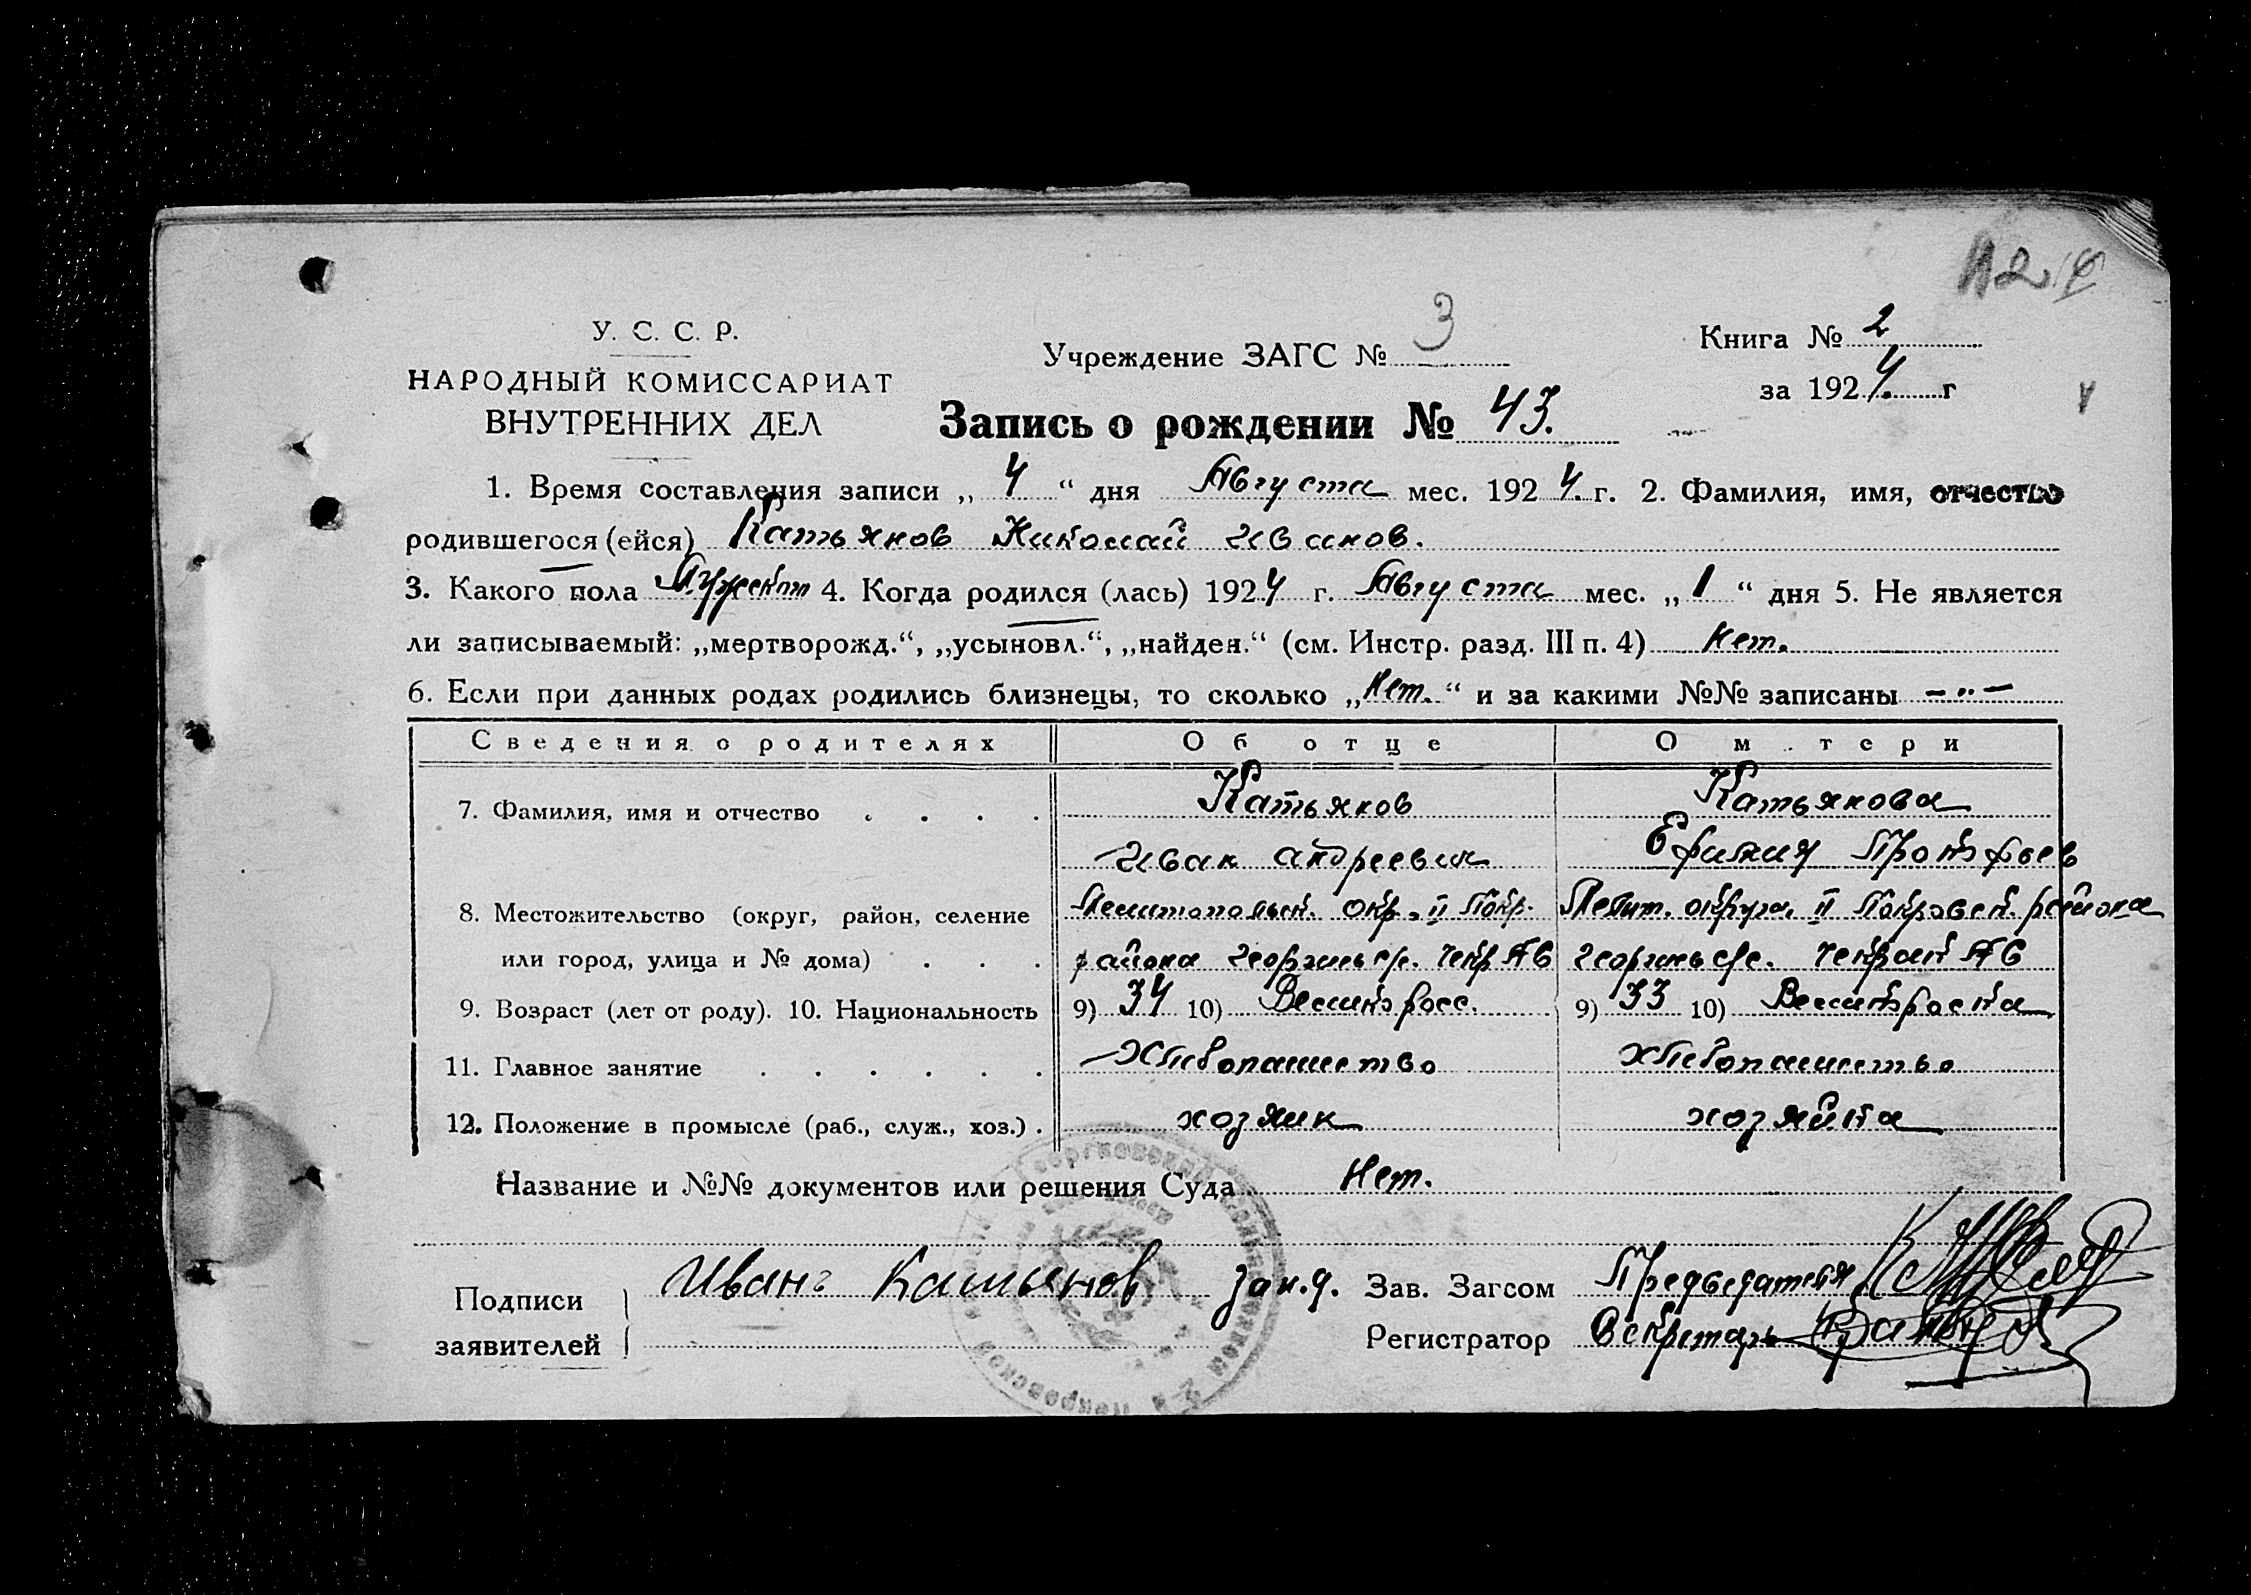 У. С. С. Р.
НАРОДНЫЙ КОМИССАРИАТ
ВНУТРЕННИХ ДЕЛ
Учреждение ЗАГС № 3
Книга № 2
за 1924. г
Запись о рождении № 43.
1. Время составления записи „ 4 “ дня Августа мес. 1924. г. 2. Фамилия, имя, отчество
родившегося (ейся) Катьянов Николай Иванов.
3. Какого пола Мужског 4. Когда родился (лась) 1924 г. Августа мес. „ 1 “ дня 5. Не является
ли записываемый: „мертворожд.“, „усыновл.“, „найден.“ (см. Инстр. разд. III п. 4) Нет.
6. Если при данных родах родились близнецы, то сколько „Нет.“ и за какими №№ записаны – „ –
Сведения о родителях Об отце О м тери
7. Фамилия, имя и отчество . . . . Катьянов Катьянова
Иван Андреевич Ефимия Прокофьев
8. Местожительство (округ, район, селение Мелитопольск. окр. II Покр. Мелит. округа II Покровск. района
или город, улица и № дома) . . . района Георгиев с/с. Чекр Георгиев с/с. Чекрак
9. Возраст (лет от роду). 10. Национальность 9) 34 10) Великоросс. 9) 33 10) Великороска
11. Главное занятие . . . . . . Хлебопашество Хлебопашество
12. Положение в промысле (раб., служ., хоз.) . хозяин хозяйка
Название и №№ документов или решения Суда Нет.
Подписи
заявителей
Иванъ Катьянов
Зав. Загсом Председатель
Регистратор Секретарь